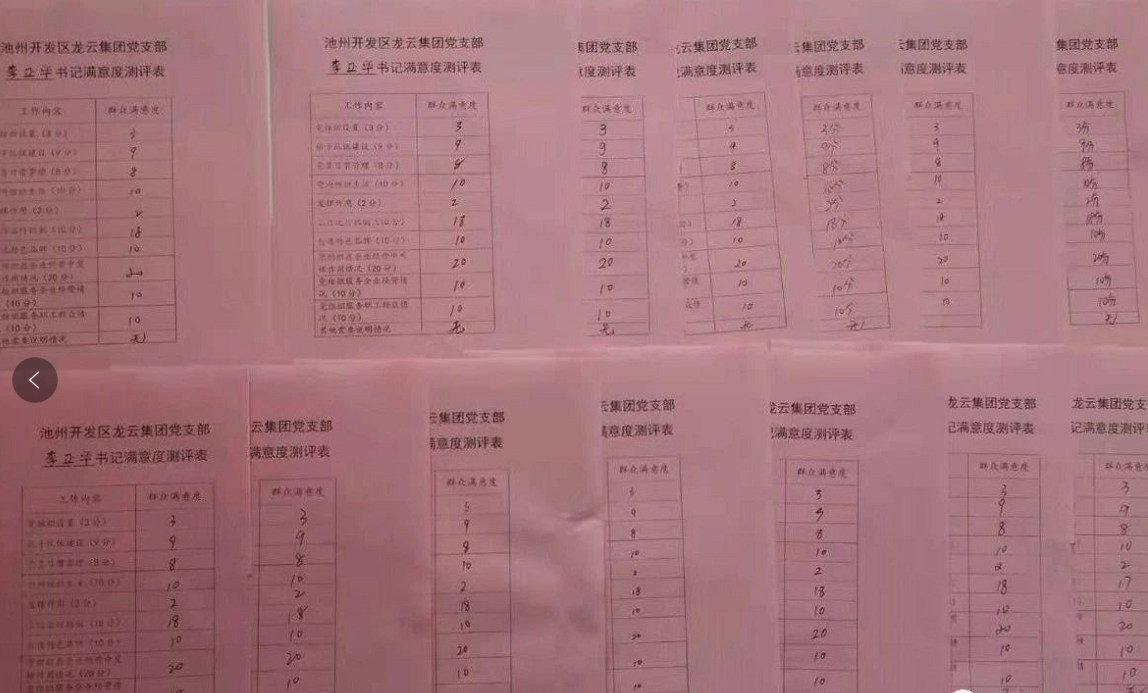 池州开发区龙云集团党支部
李正华书记满意度测评表
工作内容 群众满意度
3
9
8
10
2
18
10
20
10
10
无
池州开发区龙云集团党支部
李正华书记满意度测评表
工作内容 群众满意度
党组织设置（3分） 3
班子队伍建设（9分） 9
党员日常管理（8分） 8
党内组织生活（10分） 10
发挥作用（2分） 2
18
打造特色品牌（10分） 10
党组织在企业经营中发
挥作用情况（20分） 20
党组织服务企业经营情
况（10分） 10
党组织服务职工群众情
况（10分） 10
其他需要说明情况 无
集团党支部
意度测评表
群众满意度
3
9
8
10
2
18
10
20
10
10
无
云集团党支部
满意度测评表
群众满意度
9
8
10
18
10
20
10
10
无
云集团党支部
满意度测评表
群众满意度
9分
8分
10分
2分
18分
10分
20分
10分
10分
无
云集团党支部
满意度测评表
群众满意度
3
9
8
10
2
18
10
20
10
10
集团党支部
意度测评表
群众满意度
3分
9分
8分
10分
2分
18分
10分
20分
10分
10分
无
池州开发区龙云集团党支部
李正华书记满意度测评表
工作内容 群众满意度
党组织设置（3分） 3
班子队伍建设（9分） 9
党员日常管理（8分） 8
党内组织生活（10分） 10
发挥作用（2分） 2
18
打造特色品牌（10分） 10
党组织在企业经营中发
挥作用情况（20分） 20
党组织服务企业经营情
云集团党支部
满意度测评表
群众满意度
3
9
8
10
2
18
10
20
10
云集团党支部
满意度测评表
群众满意度
9
8
10
2
18
10
20
10
云集团党支部
满意度测评表
群众满意度
3
9
8
10
2
18
10
20
10
10
龙云集团党支部
记满意度测评表
群众满意度
3
9
8
10
2
18
10
20
10
10
龙云集团党支部
记满意度测评表
群众满意度
3
9
8
10
2
18
10
20
10
10
龙云集团党支
记满意度测评
群众满意度
3
9
8
10
2
17
10
20
10
10